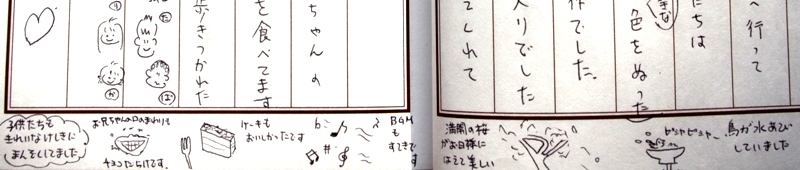 へ行って
たちは
きな
色をぬった
でした。
入りでした
くれて
鳥が水あび
していました
ピシャピシャ〜
満開の桜
がお日様に
はえて美しい
ちゃんの
を食べてます
歩きつかれた
た
ば
か
BGM
も
すてきです
ケーキも
おいしかったです
お兄ちゃんの口のまわりも
チョコだらけです。
子供たちも
きれいなけしきに
まんぞくしてました